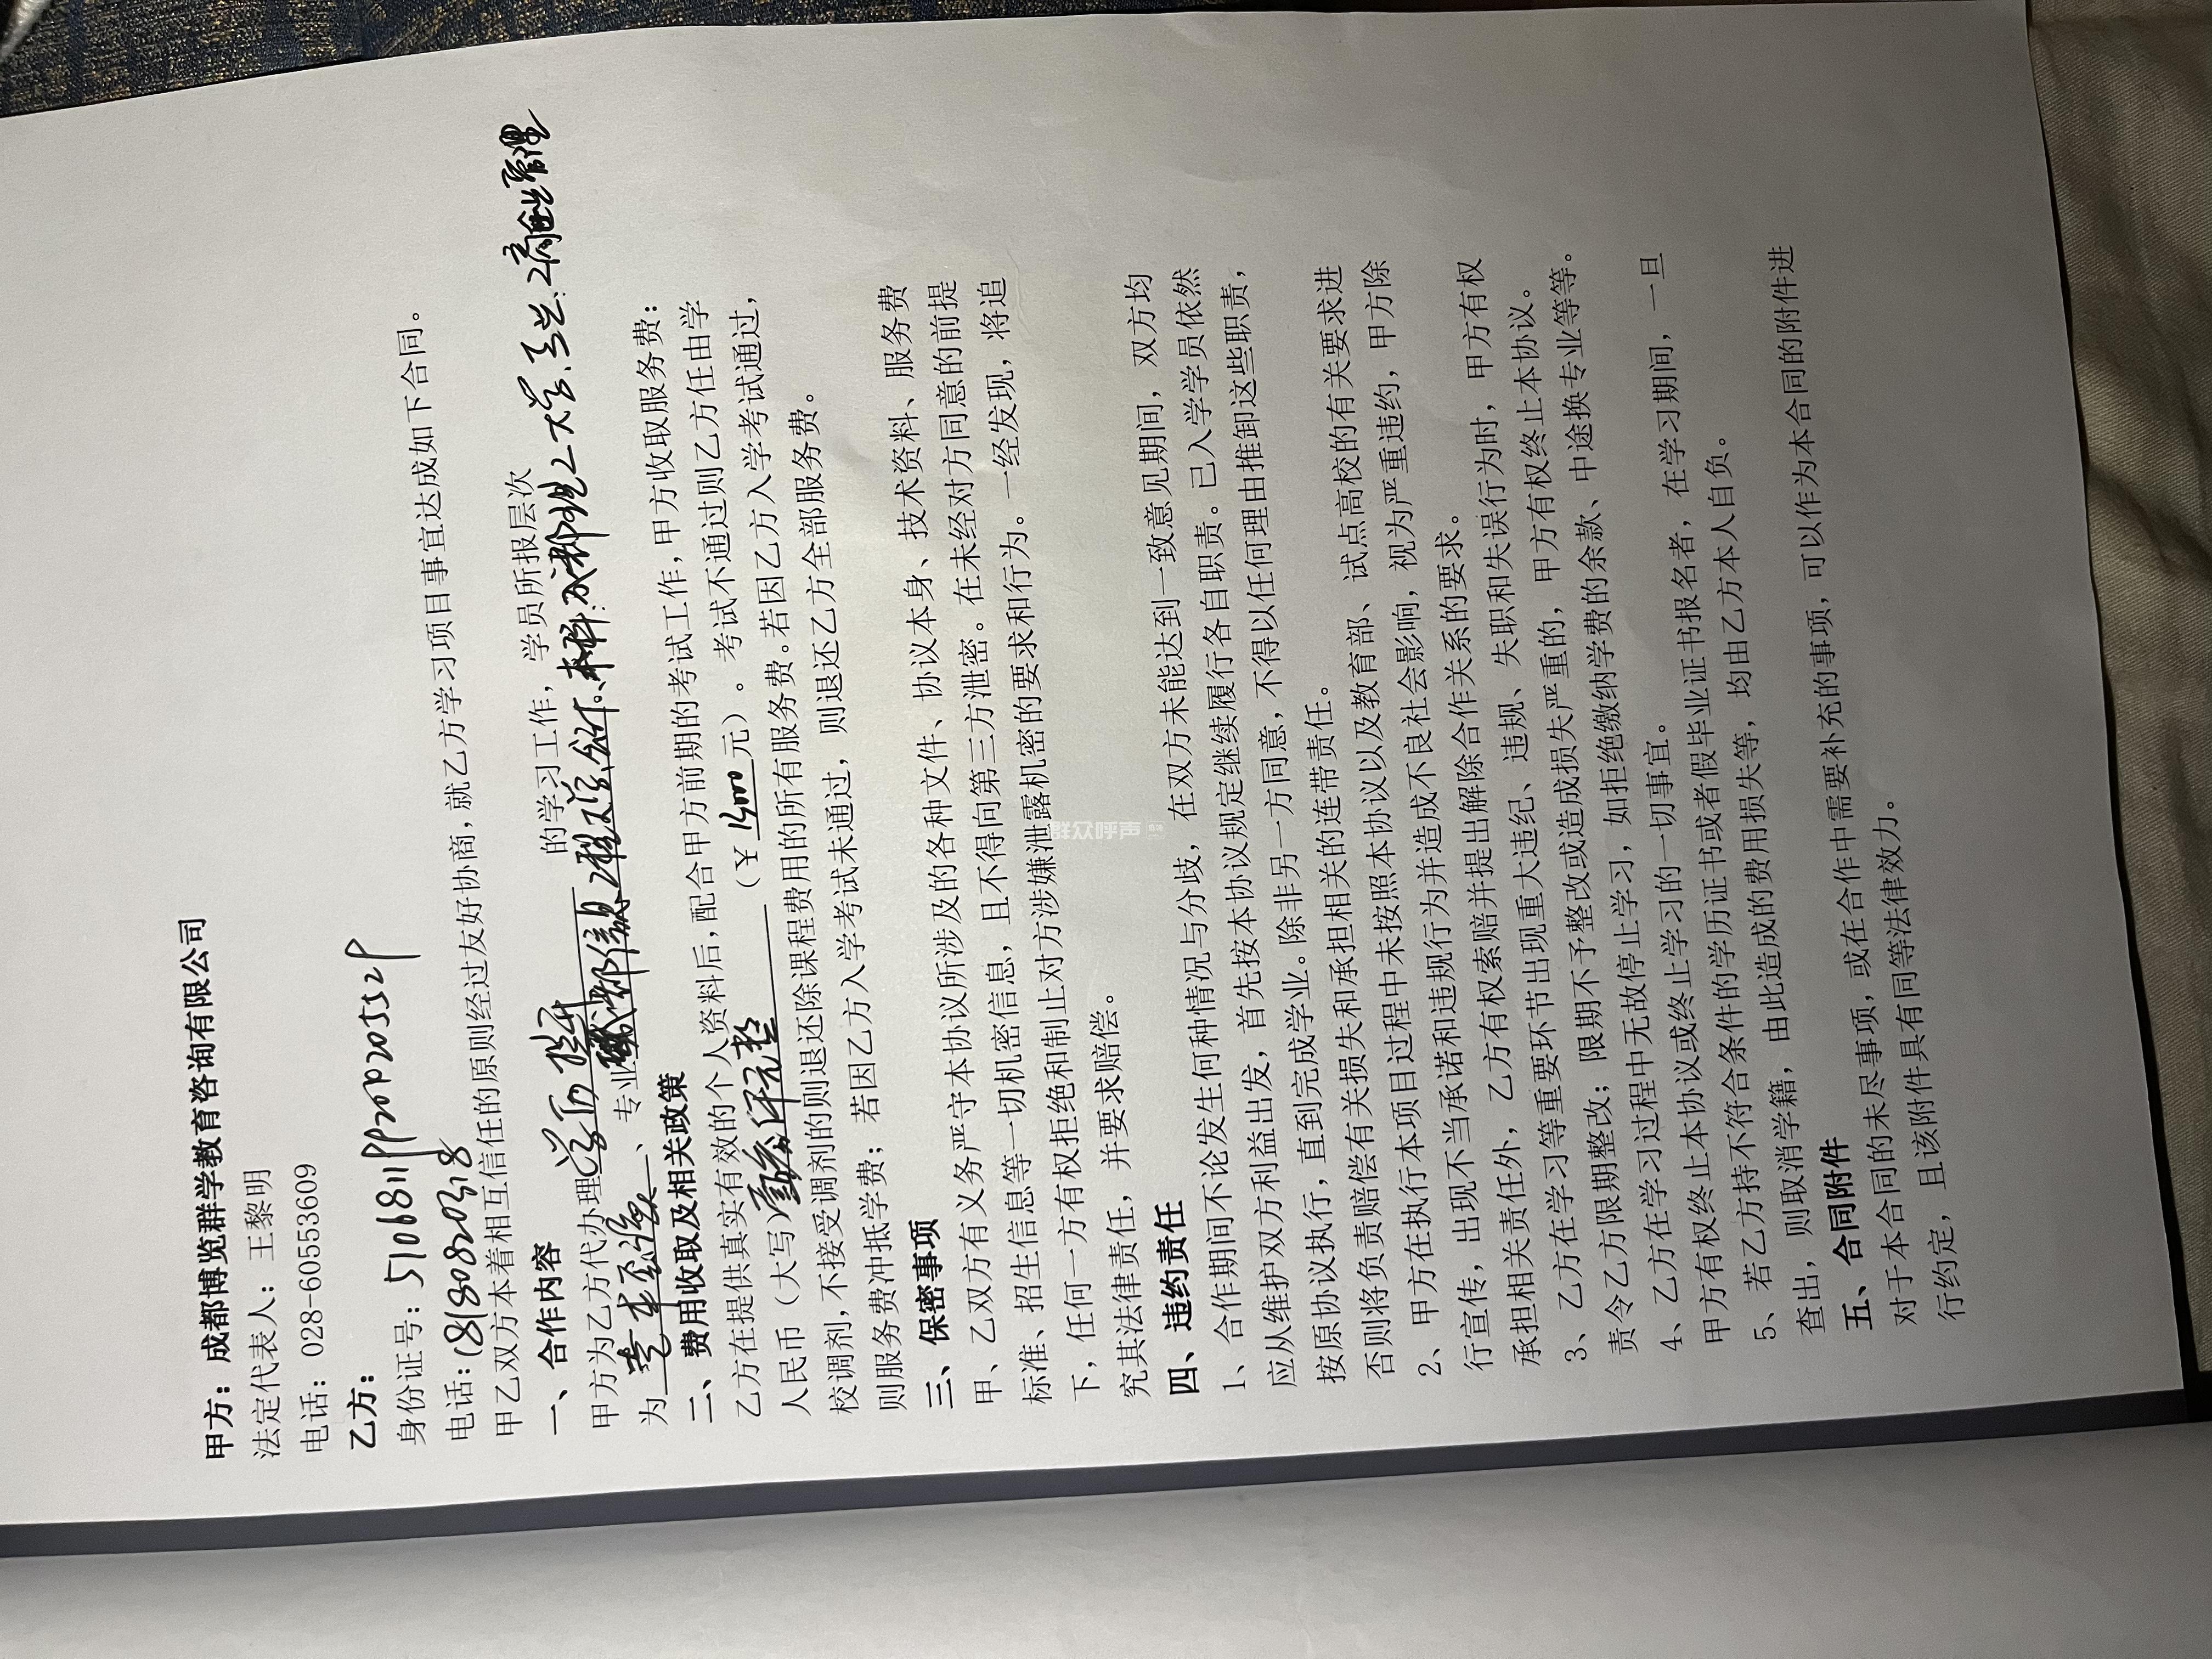 甲方：成都博览群学教育咨询有限公司
法定代表人：王黎明
电话：028-60553609
乙方：
身份证号：
电话：18180820318
甲乙双方本着相互信任的原则经过友好协商,就乙方学习项目事宜达成如下合同。
一、合作内容
甲方为乙方代办理学历提升的学习工作，学员所报层次
为、专业成都信息工程大学 会计、本科:成都理工大学:工商企业管理
二、费用收取及相关政策
乙方在提供真实有效的个人资料后,配合甲方前期的考试工作,甲方收取服务费:
人民币（大写）元整（￥元）。考试不通过则乙方任由学
校调剂,不接受调剂的则退还除课程费用的所有服务费。若因乙方入学考试通过,
则服务费冲抵学费；若因乙方入学考试未通过，则退还乙方全部服务费。
三、保密事项
甲、乙双方有义务严守本协议所涉及的各种文件、协议本身、技术资料、服务费
标准、招生信息等一切机密信息，且不得向第三方泄密。在未经对方同意的前提
下，任何一方有权拒绝和制止对方涉嫌泄露机密的要求和行为。一经发现，将追
究其法律责任，并要求赔偿。
四、违约责任
1、合作期间不论发生何种情况与分歧，在双方未能达到一致意见期间，双方均
应从维护双方利益出发，首先按本协议规定继续履行各自职责。已入学学员依然
按原协议执行，直到完成学业。除非另一方同意,不得以任何理由推卸这些职责,
否则将负责赔偿有关损失和承担相关的连带责任。
2、甲方在执行本项目过程中未按照本协议以及教育部、试点高校的有关要求进
行宣传，出现不当承诺和违规行为并造成不良社会影响，视为严重违约，甲方除
承担相关责任外，乙方有权索赔并提出解除合作关系的要求。
3、乙方在学习等重要环节出现重大违纪、违规、失职和失误行为时，甲方有权
责令乙方限期整改；限期不予整改或造成损失严重的，甲方有权终止本协议。
4、乙方在学习过程中无故停止学习，如拒绝缴纳学费的余款、中途换专业等等。
甲方有权终止本协议或终止学习的一切事宜。
5、若乙方持不符合条件的学历证书或者假毕业证书报名者，在学习期间，一旦
查出，则取消学籍，由此造成的费用损失等，均由乙方本人自负。
五、合同附件
对于本合同的未尽事项，或在合作中需要补充的事项，可以作为本合同的附件进
行约定，且该附件具有同等法律效力。
群众呼声